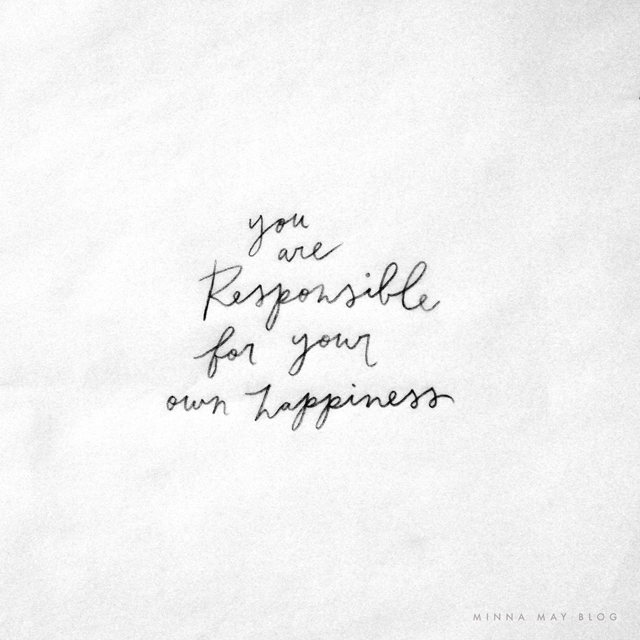 you
are
Responsible
for your
own happiness
MINNA MAY BLOG